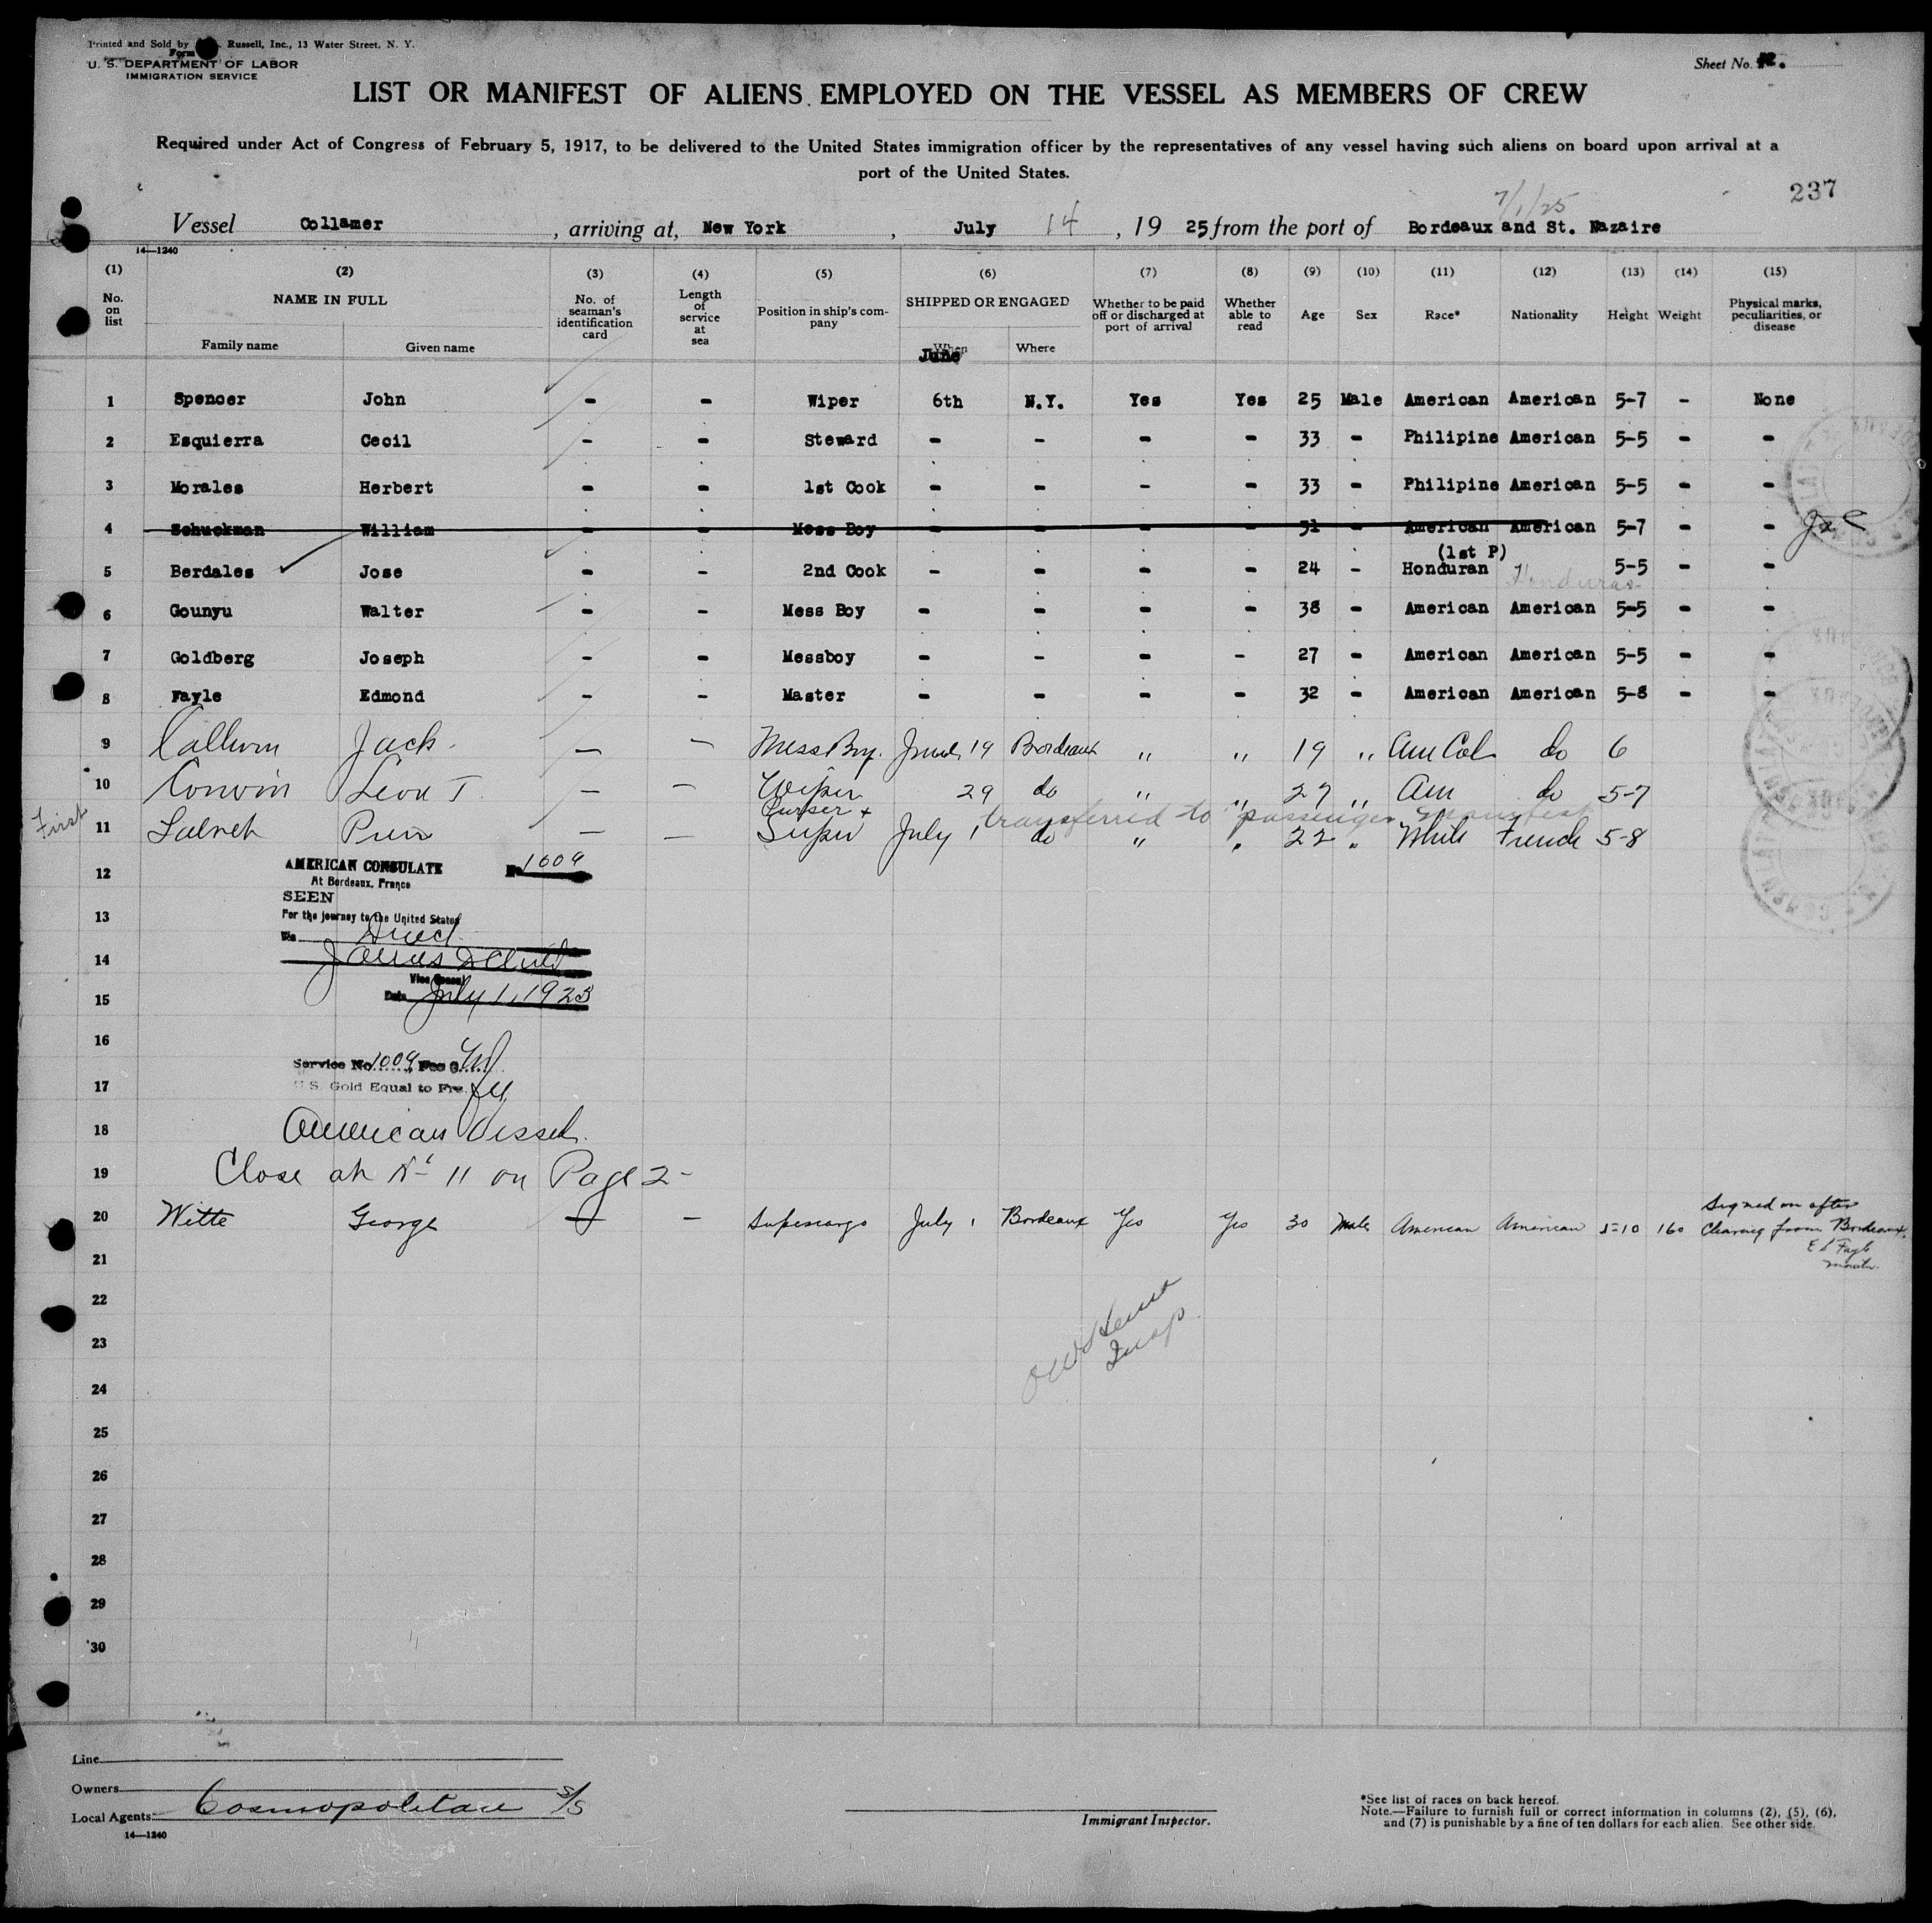 Printed and Sold by Russell, Inc., 13 Water Street, N. Y.
Form
U. S. DEPARTMENT OF LABOR
IMMIGRATION SERVICE
Sheet No. 2.
LIST OR MANIFEST OF ALIENS EMPLOYED ON THE VESSEL AS MEMBERS OF CREW
Required under Act of Congress of February 5, 1917, to be delivered to the United States immigration officer by the representatives of any vessel having such aliens on board upon arrival at a
port of the United States.
7/1/25
237
Vessel Collamer, arriving at, New York, July 14, 1925 from the port of Bordeaux and St. Nazaire
14—1240
(1) (2) (3) (4) (5) (6) (7) (8) (9) (10) (11) (12) (13) (14) (15)
No. on list NAME IN FULL No. of seaman's identification card Length of service at sea Position in ship's company SHIPPED OR ENGAGED Whether to be paid off or discharged at port of arrival Whether able to read Age Sex Race* Nationality Height Weight Physical marks, peculiarities, or disease
Family name Given name When Where
June
1 Spencer John - - Wiper 6th N.Y. Yes Yes 25 Male American American 5-7 - None
2 Esquierra Cecil - - Steward - - - - 33 - Philipine American 5-5 - -
3 Morales Herbert - - 1st Cook - - - - 33 - Philipine American 5-5 - -
4 Schuckman William - - Mess Boy - - - - 31 - American American 5-7 - -
(1st P)
5 Berdales Jose - - 2nd Cook - - - - 24 - Honduran Honduras 5-5 - -
6 Gounyu Walter - - Mess Boy - - - - 38 - American American 5-5 - -
7 Goldberg Joseph - - Messboy - - - - 27 - American American 5-5 - -
8 Fayle Edmond - - Master - - - - 32 - American American 5-8 - -
9 Jack - - Mess Boy. June 19 Bordeaux " " 19 " Am Col do 6
10 Conwin Leon T. - - Wiper 29 do " " 27 " Am do 5-7
Purser + transferred to passenger manifest
First 11 - - Super July 1 do " " 22 " White French 5-8
12 AMERICAN CONSULATE No 1009
At Bordeaux, France
SEEN
13 For the journey to the United States
Via Direct
14 James
Vice Consul
15 Date July 1, 1925
16
Service No 1009, Fee $
17 U. S. Gold Equal to Frs.
18 American Vessel.
19 Close at No 11 on Page 2-
20 Witte George - - Supercargo July 1 Bordeaux Yes Yes 30 Male American American 5-10 160 Signed on after
Clearing from Bordeaux.
E S Fayle
Master.
21
22
23
Insp.
24
25
26
27
28
29
30
Line
Owners
Local Agents: Cosmopolitan S/S
14—1240
Immigrant Inspector.
*See list of races on back hereof.
Note.—Failure to furnish full or correct information in columns (2), (5), (6),
and (7) is punishable by a fine of ten dollars for each alien. See other side.